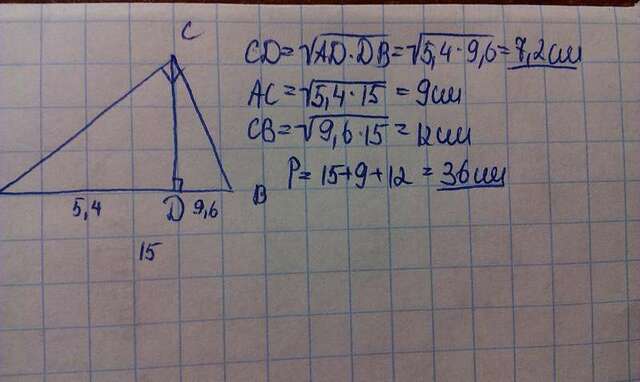 C
CD=√AD·DB=√5,4·9,6=7,2см
AC=√5,4·15=9см
CB=√9,6·15=12см
P=15+9+12=36см
5,4 D 9,6 B
15